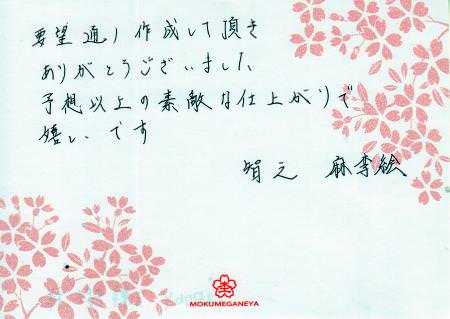 要望通り作成して頂き
ありがとうございました
予想以上の素敵な仕上がりで
嬉しいです
智之 麻李絵
MOKUMEGANEYA